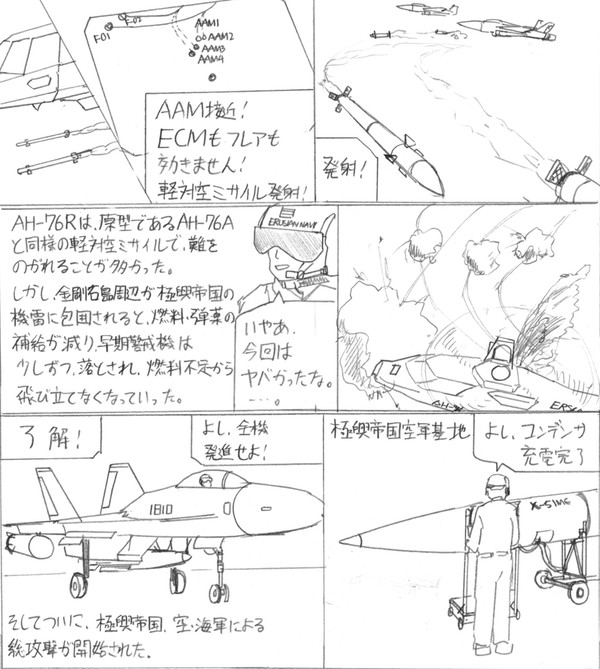 F-01
F-02
AAM1
AAM2
AAM3
AAM4
AAM接近!
ECMもフレアも
効きません!
軽対空ミサイル発射!
発射!
AH-76Rは、原型であるAH-76A
と同様の軽対空ミサイルで、難を
のがれることが多かった。
しかし、金剛石島周辺が極興帝国の
機雷に包囲されると、燃料・弾薬の
補給が減り、早期警戒機は
少しずつ、落とされ、燃料不足から
飛び立てなくなっていった。
ERUSIAN NAVY
いやあ、
今回は
ヤバかったな。
····。
AH-7
ERUS
了解!
よし、全機
発進せよ!
1810
そしてついに、極興帝国、空・海軍による
総攻撃が開始された。
極興帝国空軍基地
よし、コンデンサ
充電完了